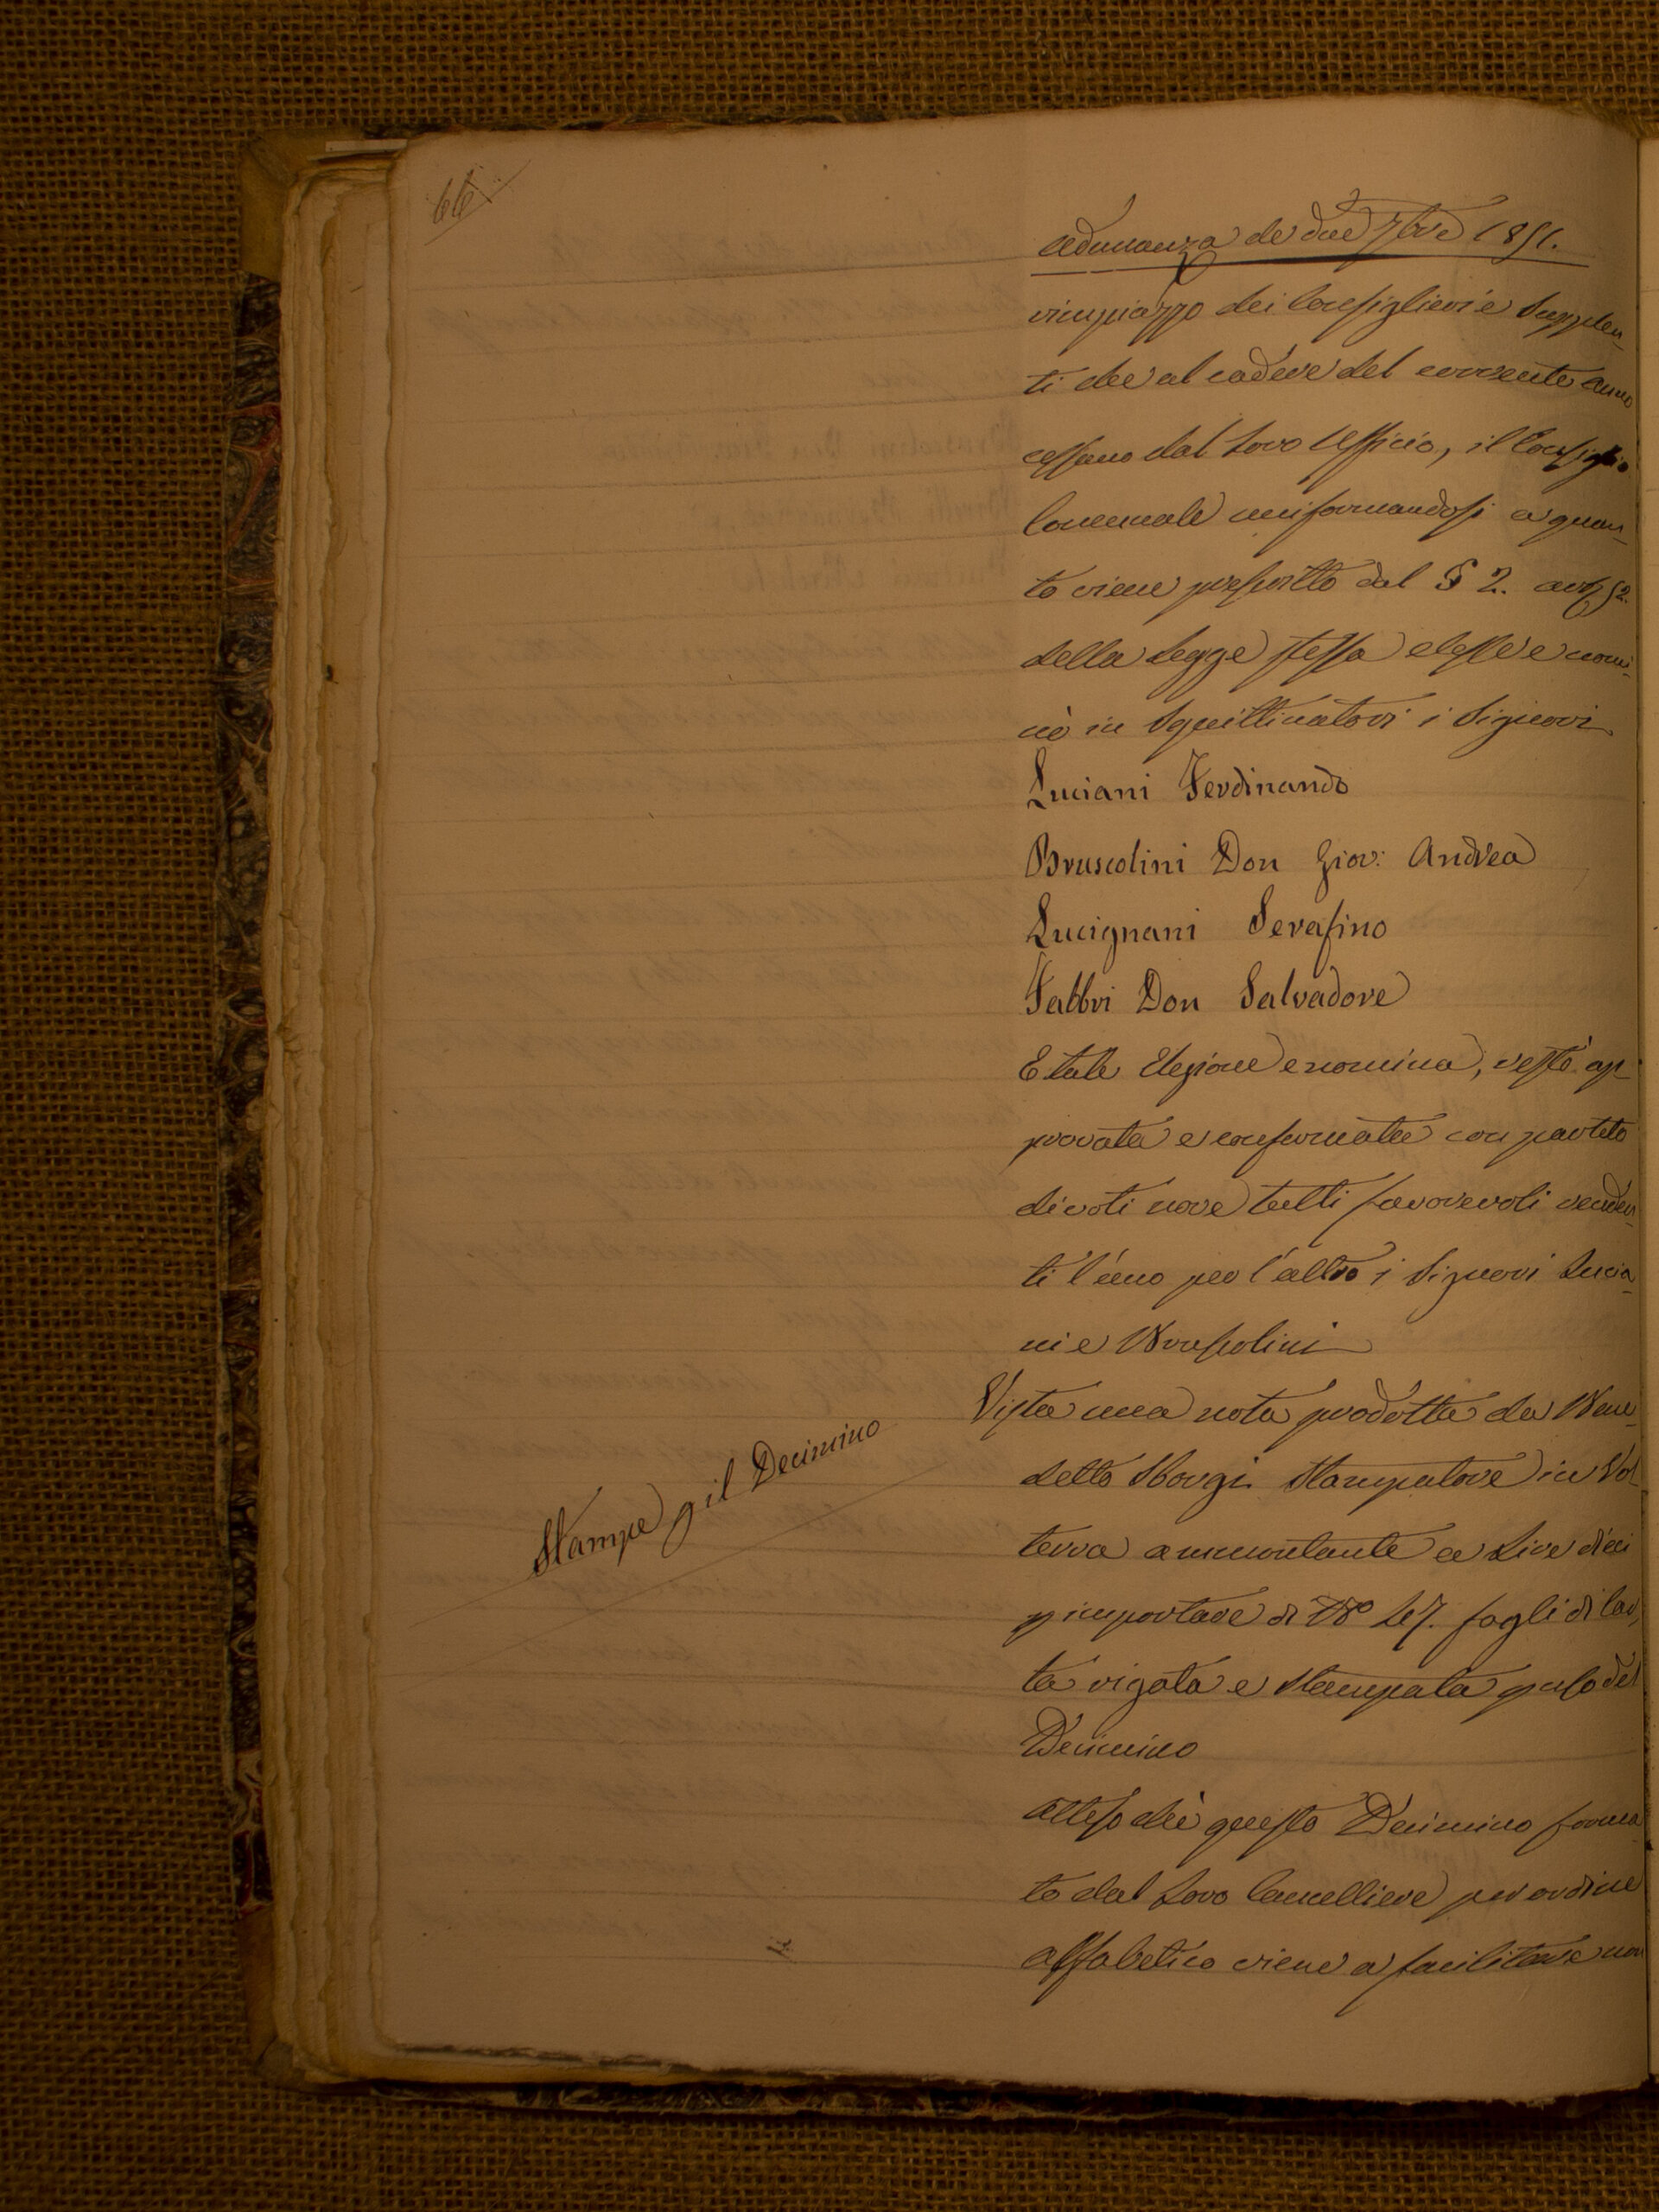 66
Adunanza de' due 7bre 1851.
rimpiazzo dei Consiglieri e Supplen-
ti che al cadere del corrente anno
cessano dal Loro Ufficio, il Consiglio
Comunale uniformandosi a quan-
to viene prescritto dal § 2. art. 52.
della Legge stessa elesse e nomi-
nò in Squittinatori i Signori
Luciani Ferdinando
Bruscolini Don Giov: Andrea
Lucignani Serafino
Fabbri Don Salvadore
E tale Elezione e nomina, restò ap-
provata e confermata con partito
di voti nove tutti favorevoli renden-
ti l'uno per l'altro i Signori Lucia-
ni e Bruscolini
Stampe p il Decimino
Vista una nota prodotta da Bene-
detto Sborgi Stampatore in Vol-
terra ammontante a Lire dieci
p importare di No fogli di Car-
ta rigata e stampata p uso del
Decimino
Atteso chè questo Decimino forma-
to dal Loro Cancelliere per ordine
alfabetico viene a facilitare non